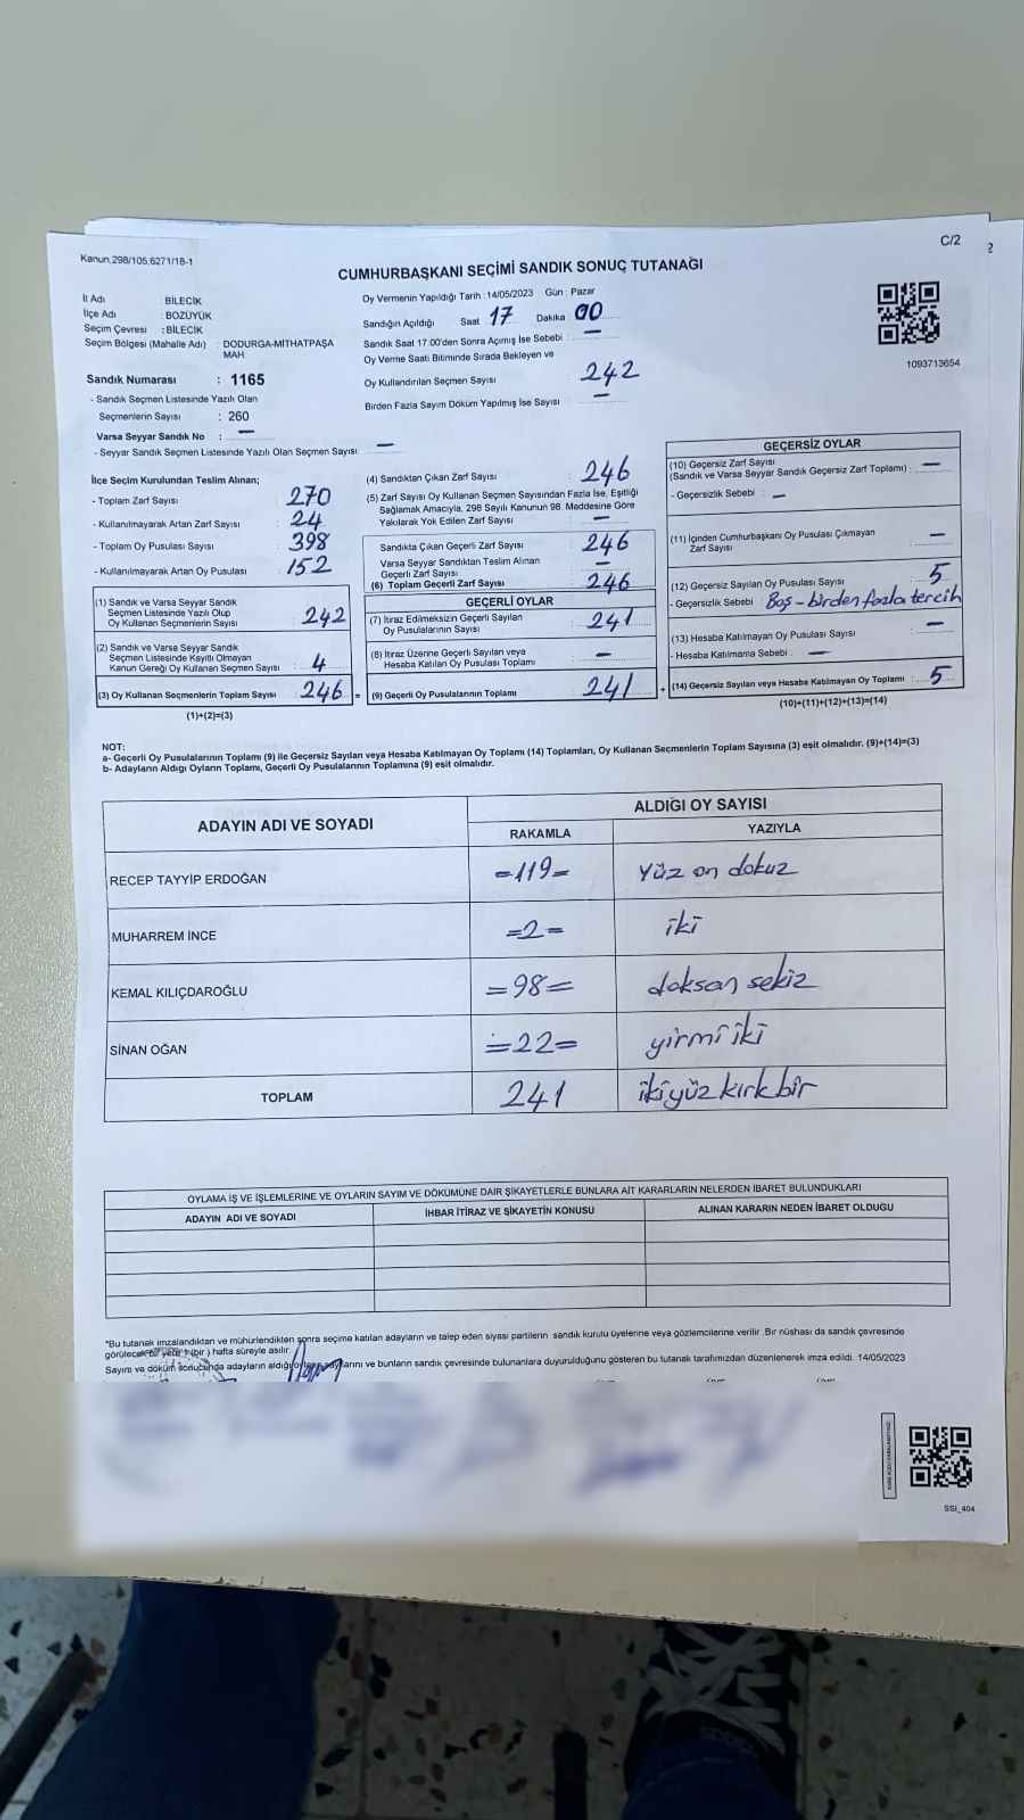 Kanun.298/105,6271/18-1
C/2
2
CUMHURBAŞKANI SEÇİMİ SANDIK SONUÇ TUTANAĞI
İl Adı BİLECİK
İlçe Adı : BOZÜYÜK
Seçim Çevresi : BİLECİK
Seçim Bölgesi (Mahalle Adı) : DODURGA-MİTHATPAŞA
MAH
Sandık Numarası : 1165
- Sandık Seçmen Listesinde Yazılı Olan
Seçmenlerin Sayısı : 260
Varsa Seyyar Sandık No : —
- Seyyar Sandık Seçmen Listesinde Yazılı Olan Seçmen Sayısı —
Oy Vermenin Yapıldığı Tarih : 14/05/2023 Gün : Pazar
Sandığın Açıldığı Saat 17 Dakika 00
Sandık Saat 17:00'den Sonra Açımış İse Sebebi : —
Oy Verme Saati Bitiminde Sırada Bekleyen ve
Oy Kullandırılan Seçmen Sayısı 242
Birden Fazla Sayım Döküm Yapılmış İse Sayısı —
1093713654
İlçe Seçim Kurulundan Teslim Alınan;
- Toplam Zarf Sayısı : 270
- Kullanılmayarak Artan Zarf Sayısı : 24
- Toplam Oy Pusulası Sayısı : 398
- Kullanılmayarak Artan Oy Pusulası : 152
(1) Sandık ve Varsa Seyyar Sandık
Seçmen Listesinde Yazılı Olup
Oy Kullanan Seçmenlerin Sayısı : 242
(2) Sandık ve Varsa Seyyar Sandık
Seçmen Listesinde Kayıtlı Olmayan
Kanun Gereği Oy Kullanan Seçmen Sayısı : 4
(3) Oy Kullanan Seçmenlerin Toplam Sayısı : 246 =
(1)+(2)=(3)
(4) Sandıktan Çıkan Zarf Sayısı : 246
(5) Zarf Sayısı Oy Kullanan Seçmen Sayısından Fazla İse, Eşitliği
Sağlamak Amacıyla, 298 Sayılı Kanunun 98. Maddesine Göre
Yakılarak Yok Edilen Zarf Sayısı : —
Sandıkta Çıkan Geçerli Zarf Sayısı : 246
Varsa Seyyar Sandıktan Teslim Alınan
Geçerli Zarf Sayısı : —
(6) Toplam Geçerli Zarf Sayısı : 246
GEÇERLİ OYLAR
(7) İtiraz Edilmeksizin Geçerli Sayılan
Oy Pusulalarının Sayısı : 241
(8) İtiraz Üzerine Geçerli Sayılan veya
Hesaba Katılan Oy Pusulası Toplamı : —
(9) Geçerli Oy Pusulalarının Toplamı : 241 +
GEÇERSİZ OYLAR
(10) Geçersiz Zarf Sayısı
(Sandık ve Varsa Seyyar Sandık Geçersiz Zarf Toplamı) : —
- Geçersizlik Sebebi : —
(11) İçinden Cumhurbaşkanı Oy Pusulası Çıkmayan
Zarf Sayısı : —
(12) Geçersiz Sayılan Oy Pusulası Sayısı : 5
- Geçersizlik Sebebi : Boş - birden fazla tercih
(13) Hesaba Katılmayan Oy Pusulası Sayısı : —
- Hesaba Katılmama Sebebi : —
(14) Geçersiz Sayılan veya Hesaba Katılmayan Oy Toplamı : 5
(10)+(11)+(12)+(13)=(14)
NOT:
a- Geçerli Oy Pusulalarının Toplamı (9) ile Geçersiz Sayılan veya Hesaba Katılmayan Oy Toplamı (14) Toplamları, Oy Kullanan Seçmenlerin Toplam Sayısına (3) eşit olmalıdır. (9)+(14)=(3)
b- Adayların Aldığı Oyların Toplamı, Geçerli Oy Pusulalarının Toplamına (9) eşit olmalıdır.
ADAYIN ADI VE SOYADI ALDIĞI OY SAYISI
RAKAMLA YAZIYLA
RECEP TAYYİP ERDOĞAN =119= yüz on dokuz
MUHARREM İNCE =2= iki
KEMAL KILIÇDAROĞLU =98= doksan sekiz
SİNAN OĞAN =22= yirmi iki
TOPLAM 241 ikiyüz kırkbir
OYLAMA İŞ VE İŞLEMLERİNE VE OYLARIN SAYIM VE DÖKÜMÜNE DAİR ŞİKAYETLERLE BUNLARA AİT KARARLARIN NELERDEN İBARET BULUNDUKLARI
ADAYIN ADI VE SOYADI İHBAR İTİRAZ VE ŞİKAYETİN KONUSU ALINAN KARARIN NEDEN İBARET OLDUĞU
*Bu tutanak imzalandıktan ve mühürlendikten sonra seçime katılan adayların ve talep eden siyasi partilerin sandık kurulu üyelerine veya gözlemcilerine verilir .Bir nüshası da sandık çevresinde
görülecek bir yere 1 (bir ) hafta süreyle asılır.
Sayım ve döküm sonucunda adayların aldığı oyların sayılarını ve bunların sandık çevresinde bulunanlara duyurulduğunu gösteren bu tutanak tarafımızdan düzenlenerek imza edildi. 14/05/2023
SSI_404